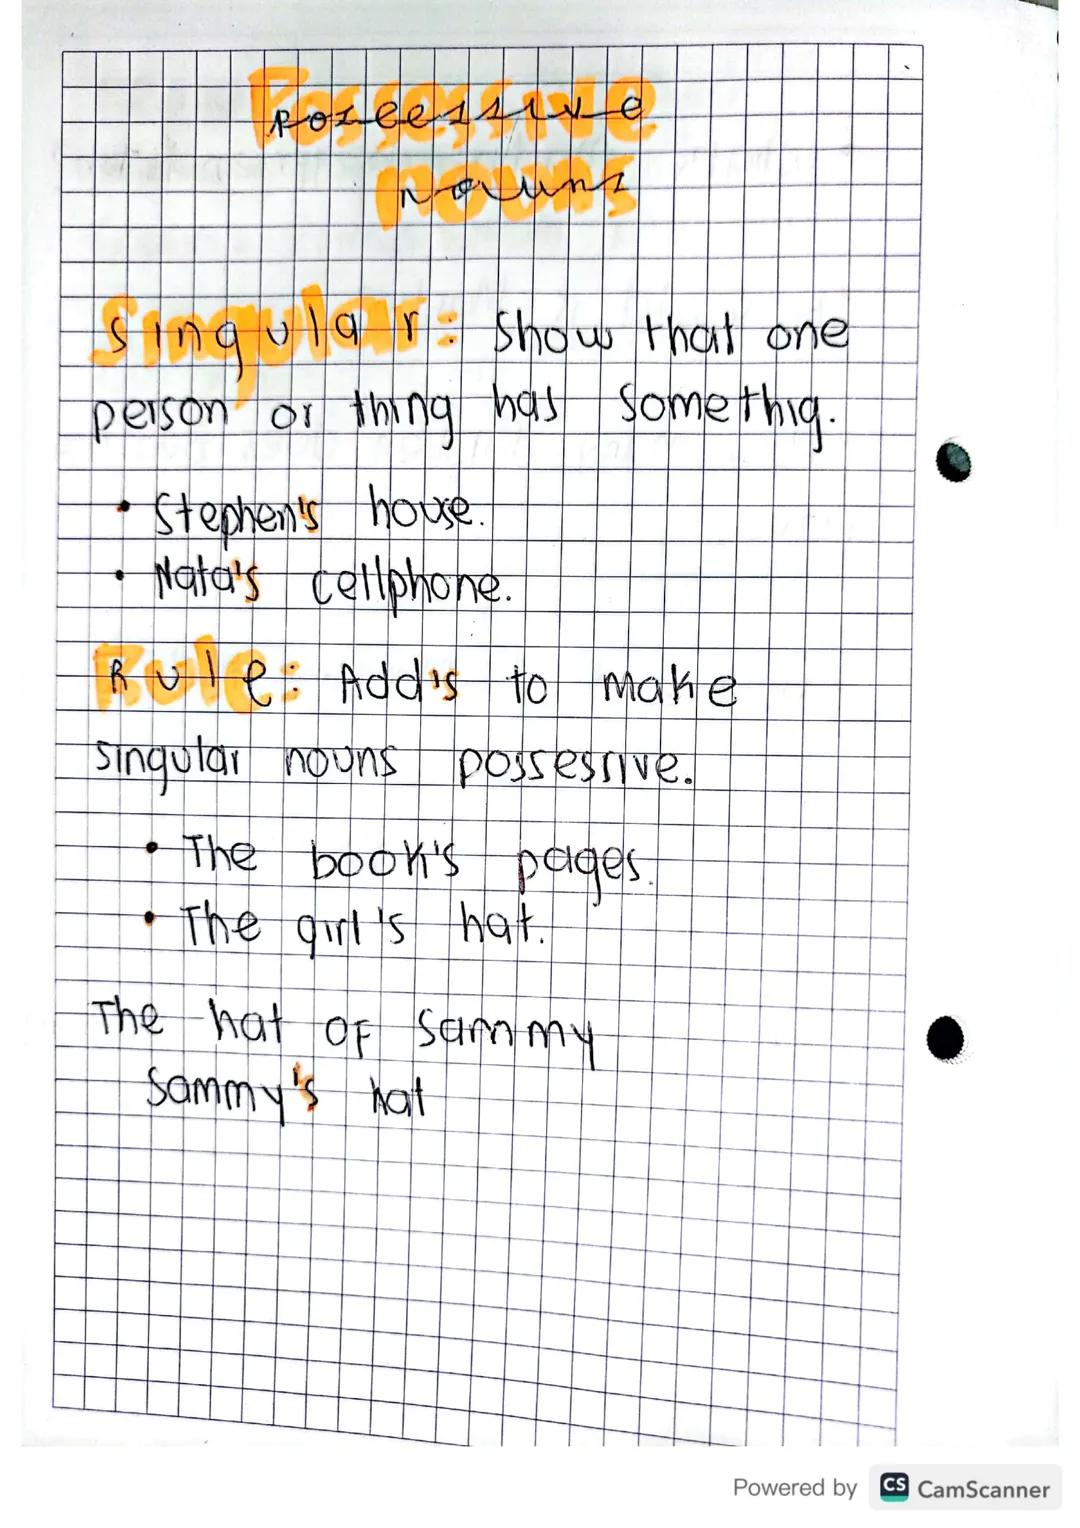 Possessive
nouns
Singular: Show that one
person or thing has somethig.
• Stephen's house.
• Nata's cellphone.
Rule: Add 's to make
singular nouns possessive.
• The book's pages.
• The girl's hat.
The hat of Sammy
Sammy's hat
Powered by CS CamScanner